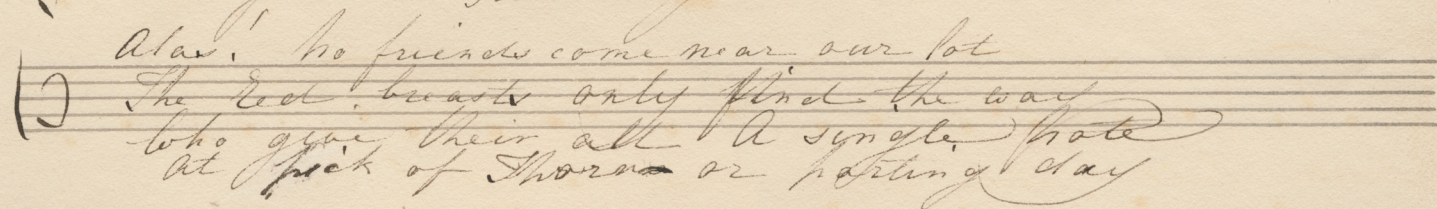 Alas! no friends come near our lot
The Red breasts only find the way
Who give their all A single Note
At pick of Thorn or parting day